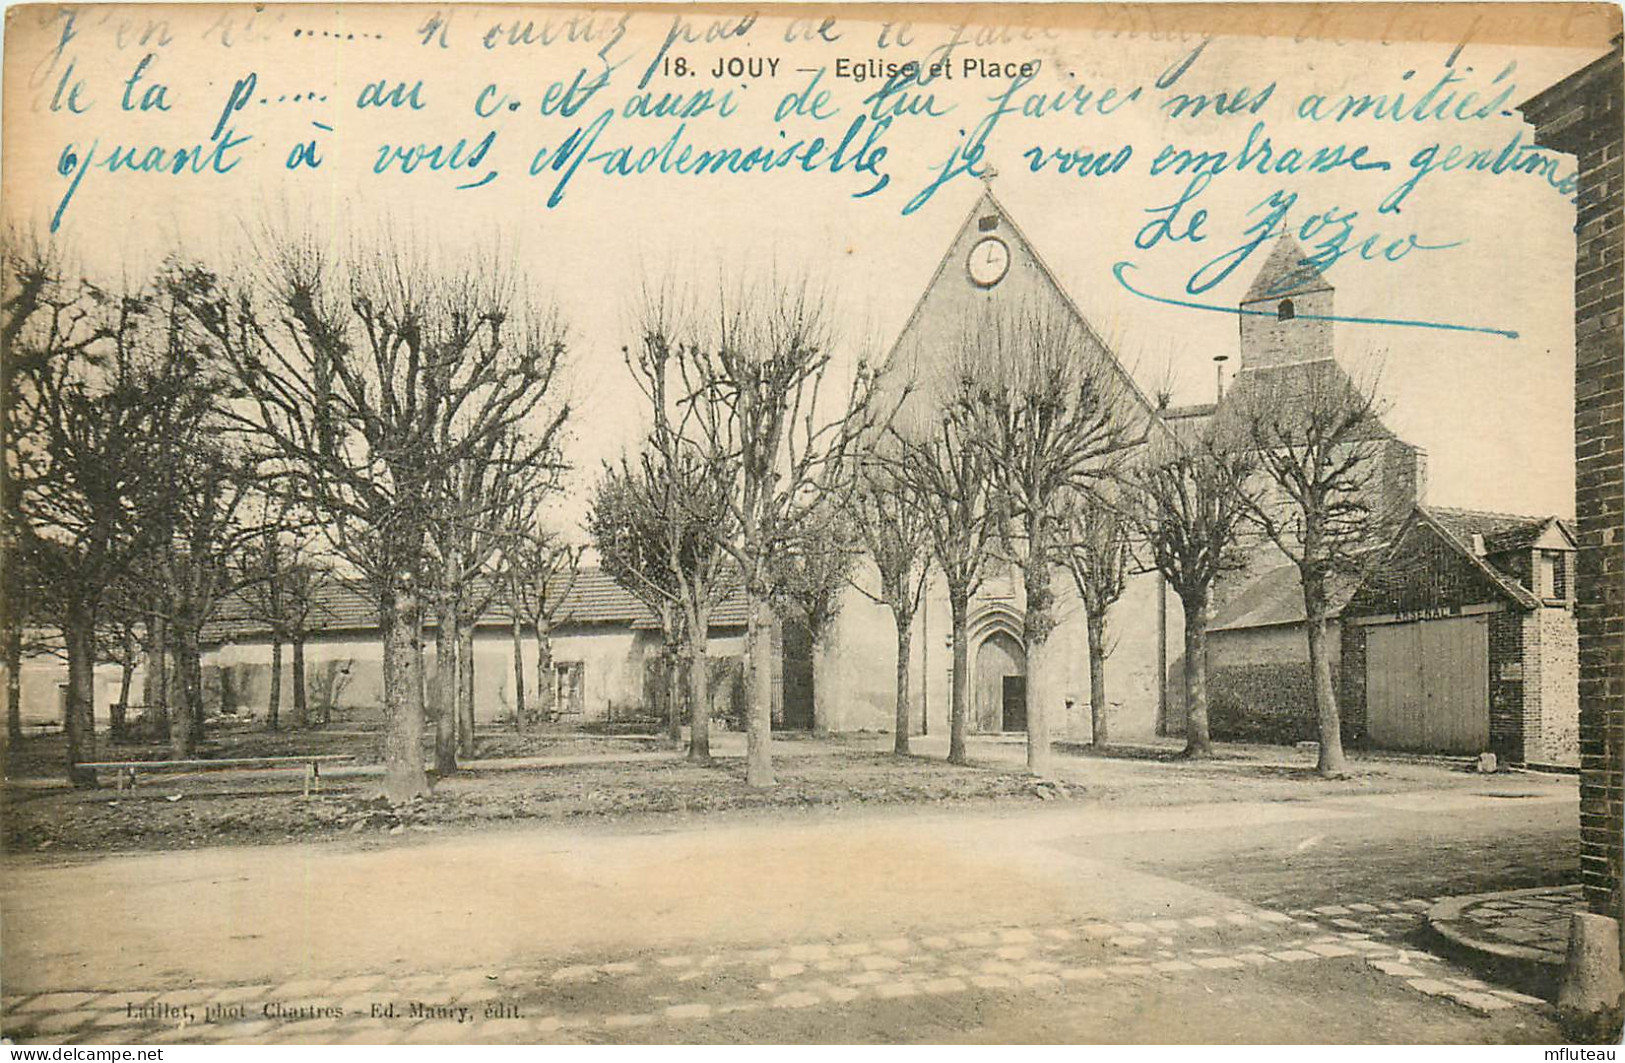 J'en ri......... N'oubliez pas de le faire de la part
18. JOUY — Eglise et Place
de la p..... au c. et aussi de lui faire mes amitiés.
Quant à vous, Mademoiselle, je vous embrasse
Le
ARSENAL
Laillet, phot Chartres - Ed. Maury, édit.
mfluteau
www.delcampe.net